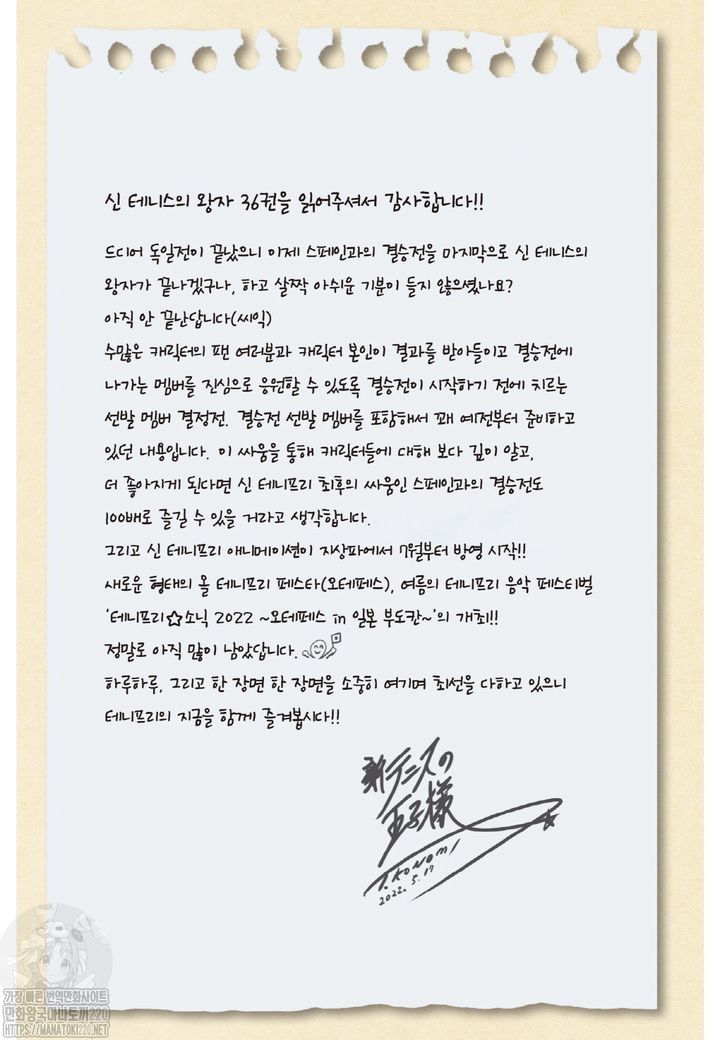 신 테니스의 왕자 36권을 읽어주셔서 감사합니다!!
드디어 독일전이 끝났으니 이제 스페인과의 결승전을 마지막으로 신 테니스의
왕자가 끝나겠구나, 하고 살짝 아쉬운 기분이 들지 않으셨나요?
아직 안 끝난답니다(씨익)
수많은 캐릭터의 팬 여러분과 캐릭터 본인이 결과를 받아들이고 결승전에
나가는 멤버를 진심으로 응원할 수 있도록 결승전이 시작하기 전에 치르는
선발 멤버 결정전. 결승전 선발 멤버를 포함해서 꽤 예전부터 준비하고
있던 내용입니다. 이 싸움을 통해 캐릭터들에 대해 보다 깊이 알고,
더 좋아지게 된다면 신 테니프리 최후의 싸움인 스페인과의 결승전도
100배로 즐길 수 있을 거라고 생각합니다.
그리고 신 테니프리 애니메이션이 지상파에서 7월부터 방영 시작!!
새로운 형태의 올 테니프리 페스타(오테페스), 여름의 테니프리 음악 페스티벌
'테니프리☆소닉 2022 ~오테페스 in 일본 부도칸~'의 개최!!
정말로 아직 많이 남았답니다.
하루하루, 그리고 한 장면 한 장면을 소중히 여기며 최선을 다하고 있으니
테니프리의 지금을 함께 즐겨봅시다!!
新テニスの
王子様
T.KONOMI
2022.5.17
가장 빠른 번역만화사이트
만화왕국마나토끼220
HTTPS://MANATOKI220.NET